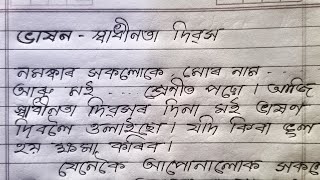 ভাষন - স্বাধীনতা দিৱস
নমস্কাৰ সকলোকে মোৰ নাম ...
আৰু মই ... শ্ৰেনীত পঢ়ো । আজি
স্বাধীনতা দিৱসৰ দিনা মই ভাষন
দিবলৈ ওলাইছো । যদি কিবা ভুল
হয় ক্ষমা কৰিব ।
যেনেকে আপোনালোক সকলে